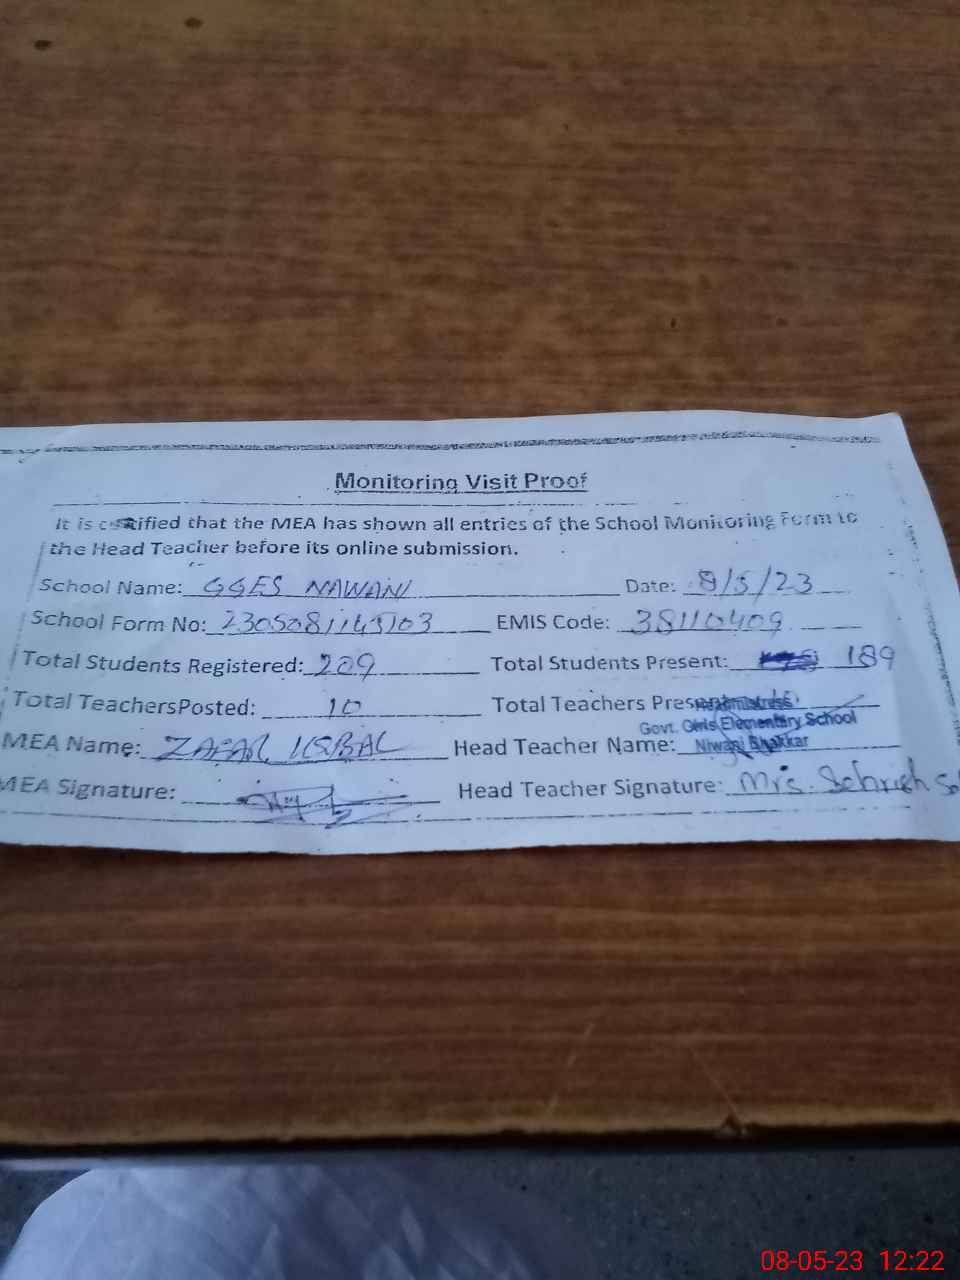 Monitoring Visit Proof
It is certified that the MEA has shown all entries of the School Monitoring Form to
the Head Teacher before its online submission.
School Name: GGES NAWANI Date: 8/5/23
School Form No: 2305081145103 EMIS Code: 38110409
Total Students Registered: 209 Total Students Present: 189
Total TeachersPosted: 10 Total Teachers Present
Govt. Girls Elementary School
MEA Name: ZAFAR IQBAL Head Teacher Name: Niwani Bhakkar
MEA Signature: Head Teacher Signature: Mrs. Sehrish
08-05-23 12:22